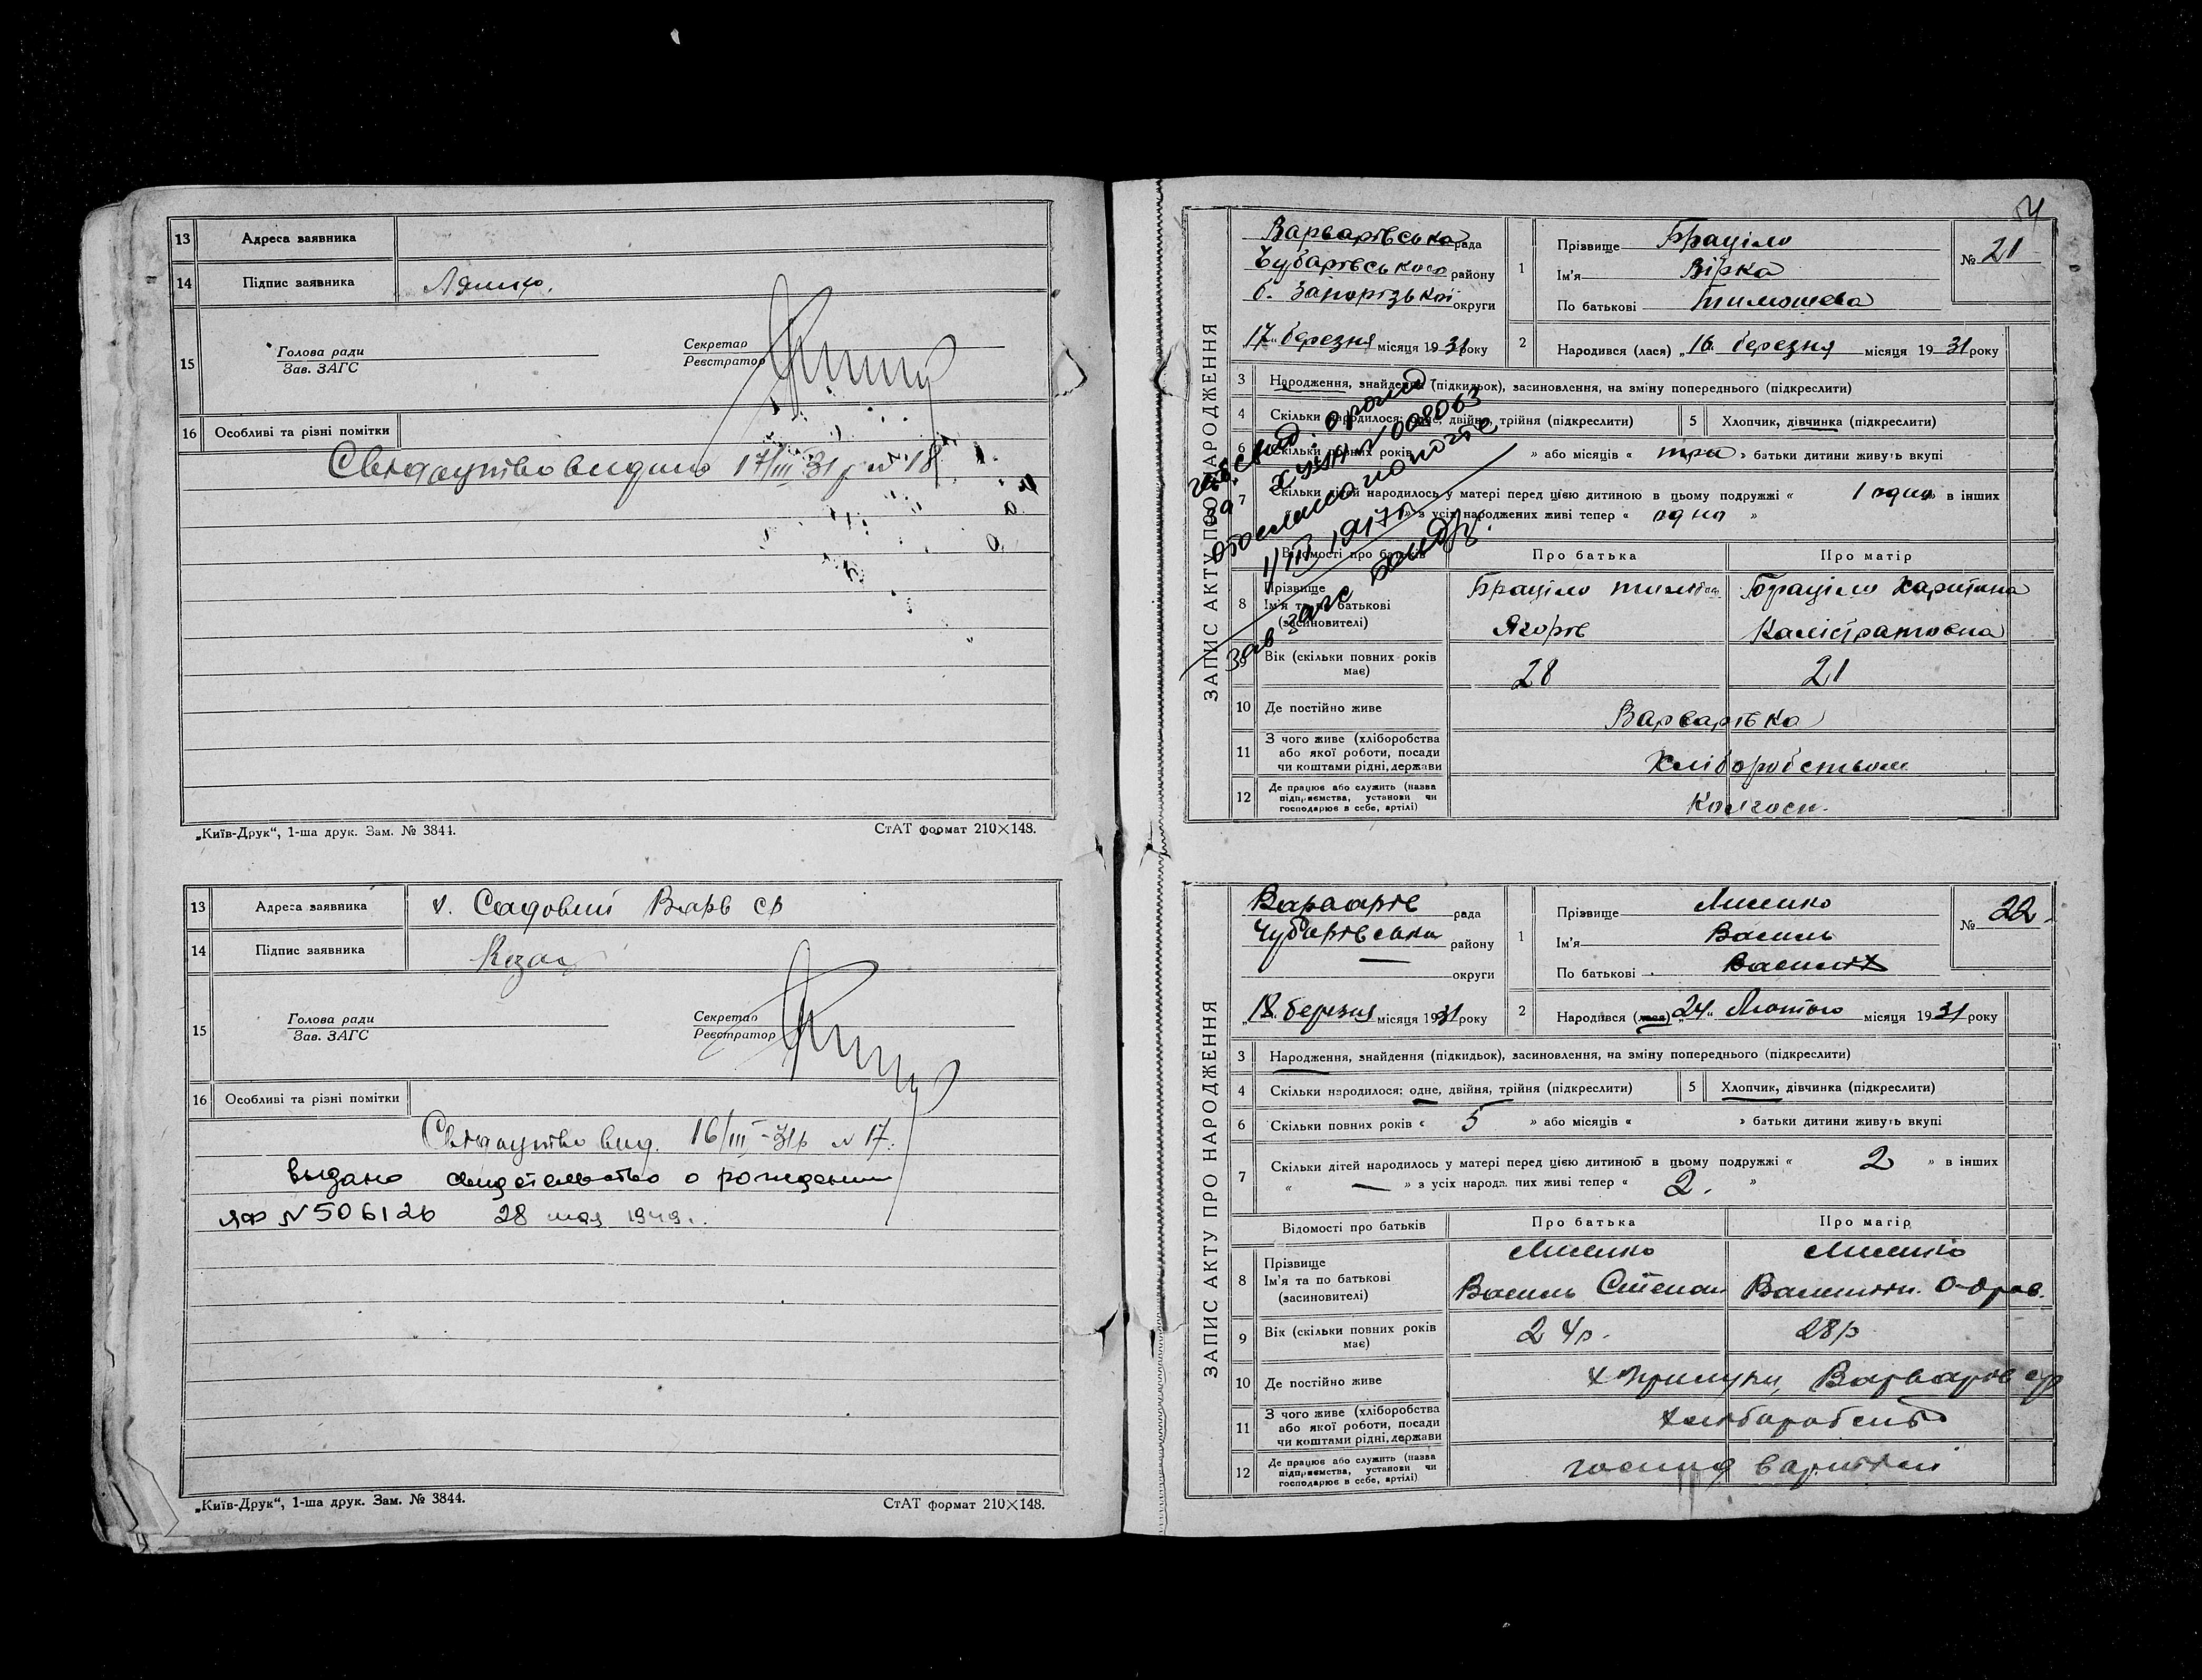 13 Адреса заявника
14 Підпис заявника
15 Голова ради Секретар
Зав. ЗАГС Реєстратор
16 Особливі та різні помітки
Свідоцтво видано 17/III 31 р № 18
„Київ-Друк“, 1-ша друк. Зам. № 3844. СтАТ формат 210×148.
13 Адреса заявника х. Садовий Варв ср
14 Підпис заявника Коза
15 Голова ради Секретар
Зав. ЗАГС Реєстратор
16 Особливі та різні помітки
Свідоцтво вид. 16/III-31р № 17.
выдано свидетельство о рождении
ЯФ № 506126 28 мая 1949г.
„Київ-Друк“, 1-ша друк. Зам. № 3844. СтАТ формат 210×148.
ЗАПИС АКТУ ПРО НАРОДЖЕННЯ
Варварівська рада
Чубарівського району
б. Запорізької округи
„17“ березня місяця 1931 року
1 Прізвище Браціло
Ім'я Вірка
По батькові Тимошева
№ 21
2 Народився (лася) „16“ березня місяця 1931 року
3 Народження, знайдення (підкидьок), засиновлення, на зміну попереднього (підкреслити)
4 Скільки народилося: одне, двійня, трійня (підкреслити) 5 Хлопчик, дівчинка (підкреслити)
6 Скільки повних років « » або місяців « три » батьки дитини живуть вкупі
7 Скільки дітей народилось у матері перед цією дитиною в цьому подружжі « 1 одно » в інших
» з усіх народжених живі тепер « одно »
Відомості про батьків Про батька Про матір
8 Прізвище Ім'я та по батькові (засиновителі)
Браціло Тимофій Ягорів
Браціло Харитина Калістратовна
9 Вік (скільки повних років має) 28 21
10 Де постійно живе Варварівка
11 З чого живе (хліборобства або якої роботи, посади чи коштами рідні, держави Хліборобством
12 Де працює або служить (назва підприємства, установи чи господарює в себе, артілі) Колгосп.
№ 008063
отослано по почте
Зав загс
ЗАПИС АКТУ ПРО НАРОДЖЕННЯ
Варварів рада
Чубарівська району
— округи
„18“ березня місяця 1931 року
1 Прізвище Лисенко
Ім'я Василь
По батькові Василів
№ 22.
2 Народився (лася) „24“ Лютого місяця 1931 року
3 Народження, знайдення (підкидьок), засиновлення, на зміну попереднього (підкреслити)
4 Скільки народилося: одне, двійня, трійня (підкреслити) 5 Хлопчик, дівчинка (підкреслити)
6 Скільки повних років « 5 » або місяців « » батьки дитини живуть вкупі
7 Скільки дітей народилось у матері перед цією дитиною в цьому подружжі « 2 » в інших
« — » з усіх народжених живі тепер « 2. »
Відомості про батьків Про батька Про матір
8 Прізвище Ім'я та по батькові (засиновителі)
Лисенко Василь Степан
Лисенко
9 Вік (скільки повних років має) 24р. 28р
10 Де постійно живе х Прилуки, Варварів ср
11 З чого живе (хліборобства або якої роботи, посади чи коштами рідні, держави хліборобств
12 Де працює або служить (назва підприємства, установи чи господарює в себе, артілі) господ в артілі